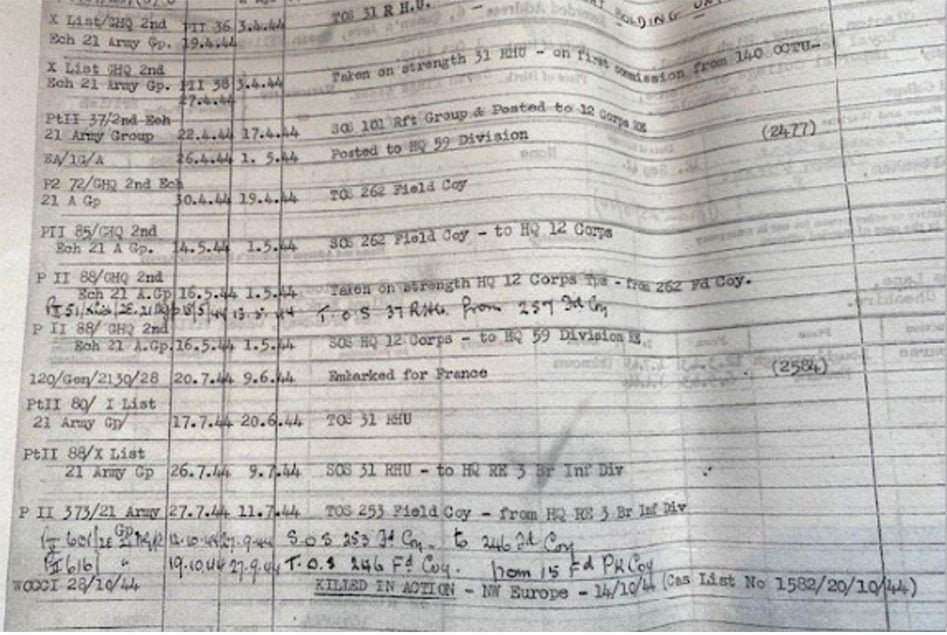 TOS 31 R.H.U.
X List/GHQ 2nd PII 36 3.4.44
Ech 21 Army Gp. 19.4.44
HOLDING
X List GHQ 2nd
Ech 21 Army Gp. PII 38 3.4.44 Taken on strength 31 RHU - on first commission from 140 OCTU-
27.4.44
PtII 37/2nd Ech
21 Army Group 22.4.44 17.4.44 SOS 101 Rft Group & Posted to 12 Corps RE (2477)
EA/1G/A 26.4.44 1. 5.44 Posted to HQ 59 Division
P2 72/GHQ 2nd Ech
21 A Gp 30.4.44 19.4.44 TOS 262 Field Coy
PII 85/GHQ 2nd
Ech 21 A Gp. 14.5.44 1.5.44 SOS 262 Field Coy - to HQ 12 Corps
P II 88/GHQ 2nd
Ech 21 A.Gp 16.5.44 1.5.44 Taken on strength HQ 12 Corps Tps - from 262 Fd Coy.
T.O.S 37 RHU. from 257 Fd Coy
P II 88/ GHQ 2nd
Ech 21 A.Gp. 16.5.44 1.5.44 SOS HQ 12 Corps - to HQ 59 Division RE
120/Gen/2130/28 20.7.44 9.6.44 Embarked for France (2584)
PtII 80/ X List
21 Army Gp/ 17.7.44 20.6.44 TOS 31 RHU
PtII 88/X List
21 Army Gp 26.7.44 9.7.44 SOS 31 RHU - to HQ RE 3 Br Inf Div
P II 373/21 Army 27.7.44 11.7.44 TOS 253 Field Coy - from HQ RE 3 Br Inf Div
Gp
12.10.44 27.9.44 S.O.S 253 Fd Coy. to 246 Fd Coy
19.10.44 27.9.44 T.O.S 246 Fd Coy. from 15 Fd Pk Coy
28/10/44 KILLED IN ACTION - NW Europe - 14/10/44 (Cas List No 1582/20/10/44)